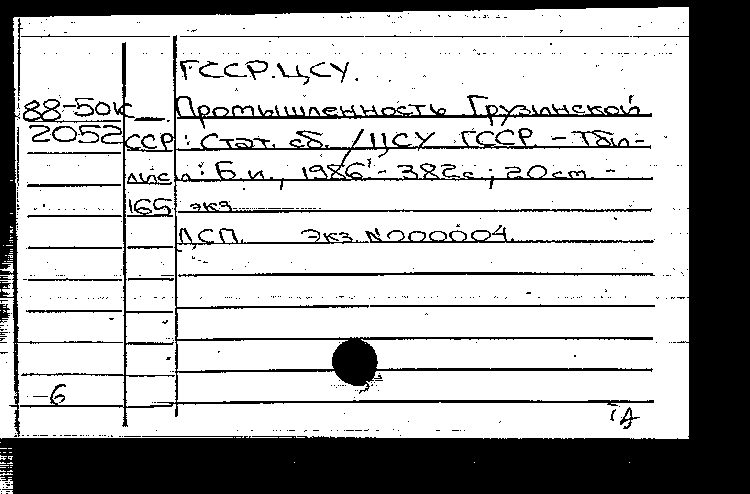 ГССР. ЦСУ.
88-50к Промышленность Грузинской
2052 ССР : Стат. сб. / ЦСУ ГССР. - Тби-
лиси : Б.и., 1986. - 382с ; 20 cm. -
165 экз
ДСП. Экз. N000004.
-6